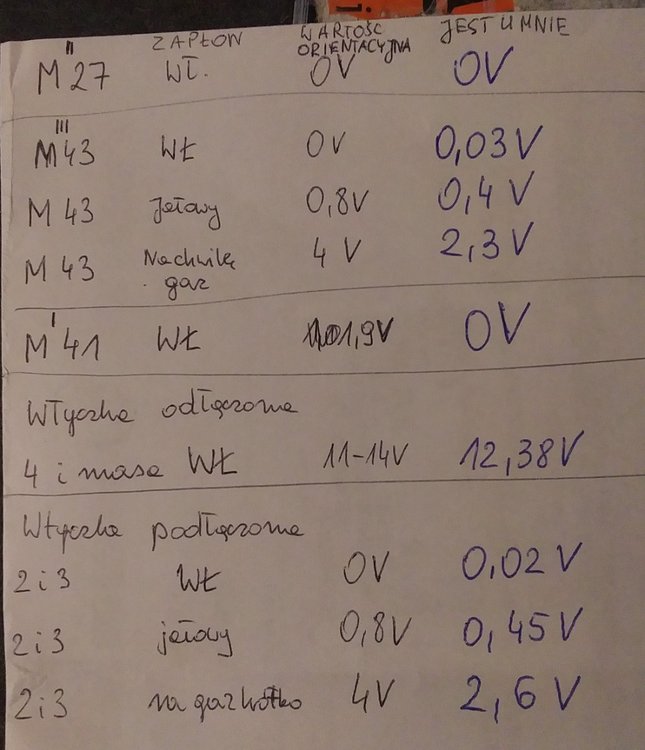 ZAPŁON WARTOŚĆ ORIENTACYJNA JEST U MNIE
II
M 27 WŁ. 0V 0V
III
M 43 WŁ 0V 0,03V
M 43 Jałowy 0,8V 0,4V
M 43 Na chwilę gaz 4V 2,3V
I
M 41 WŁ 1,9V 0V
Wtyczka odłączona
4 i masa WŁ 11-14V 12,38V
Wtyczka podłączona
2 i 3 WŁ 0V 0,02V
2 i 3 jałowy 0,8V 0,45V
2 i 3 na gaz krótko 4V 2,6V